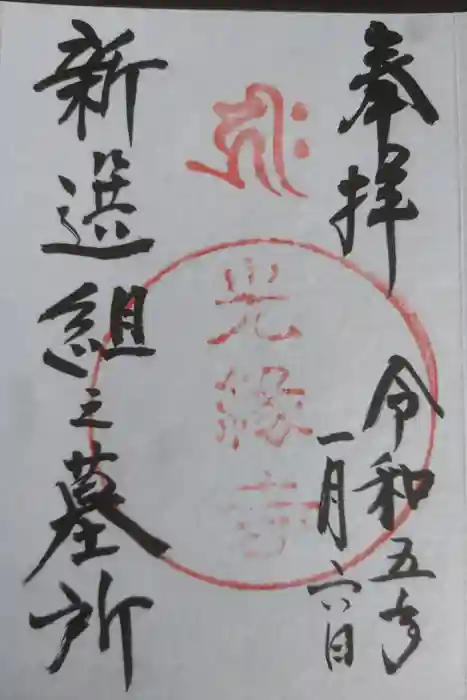 奉拝
令和五年
一月六日
光縁寺
新選組之墓所